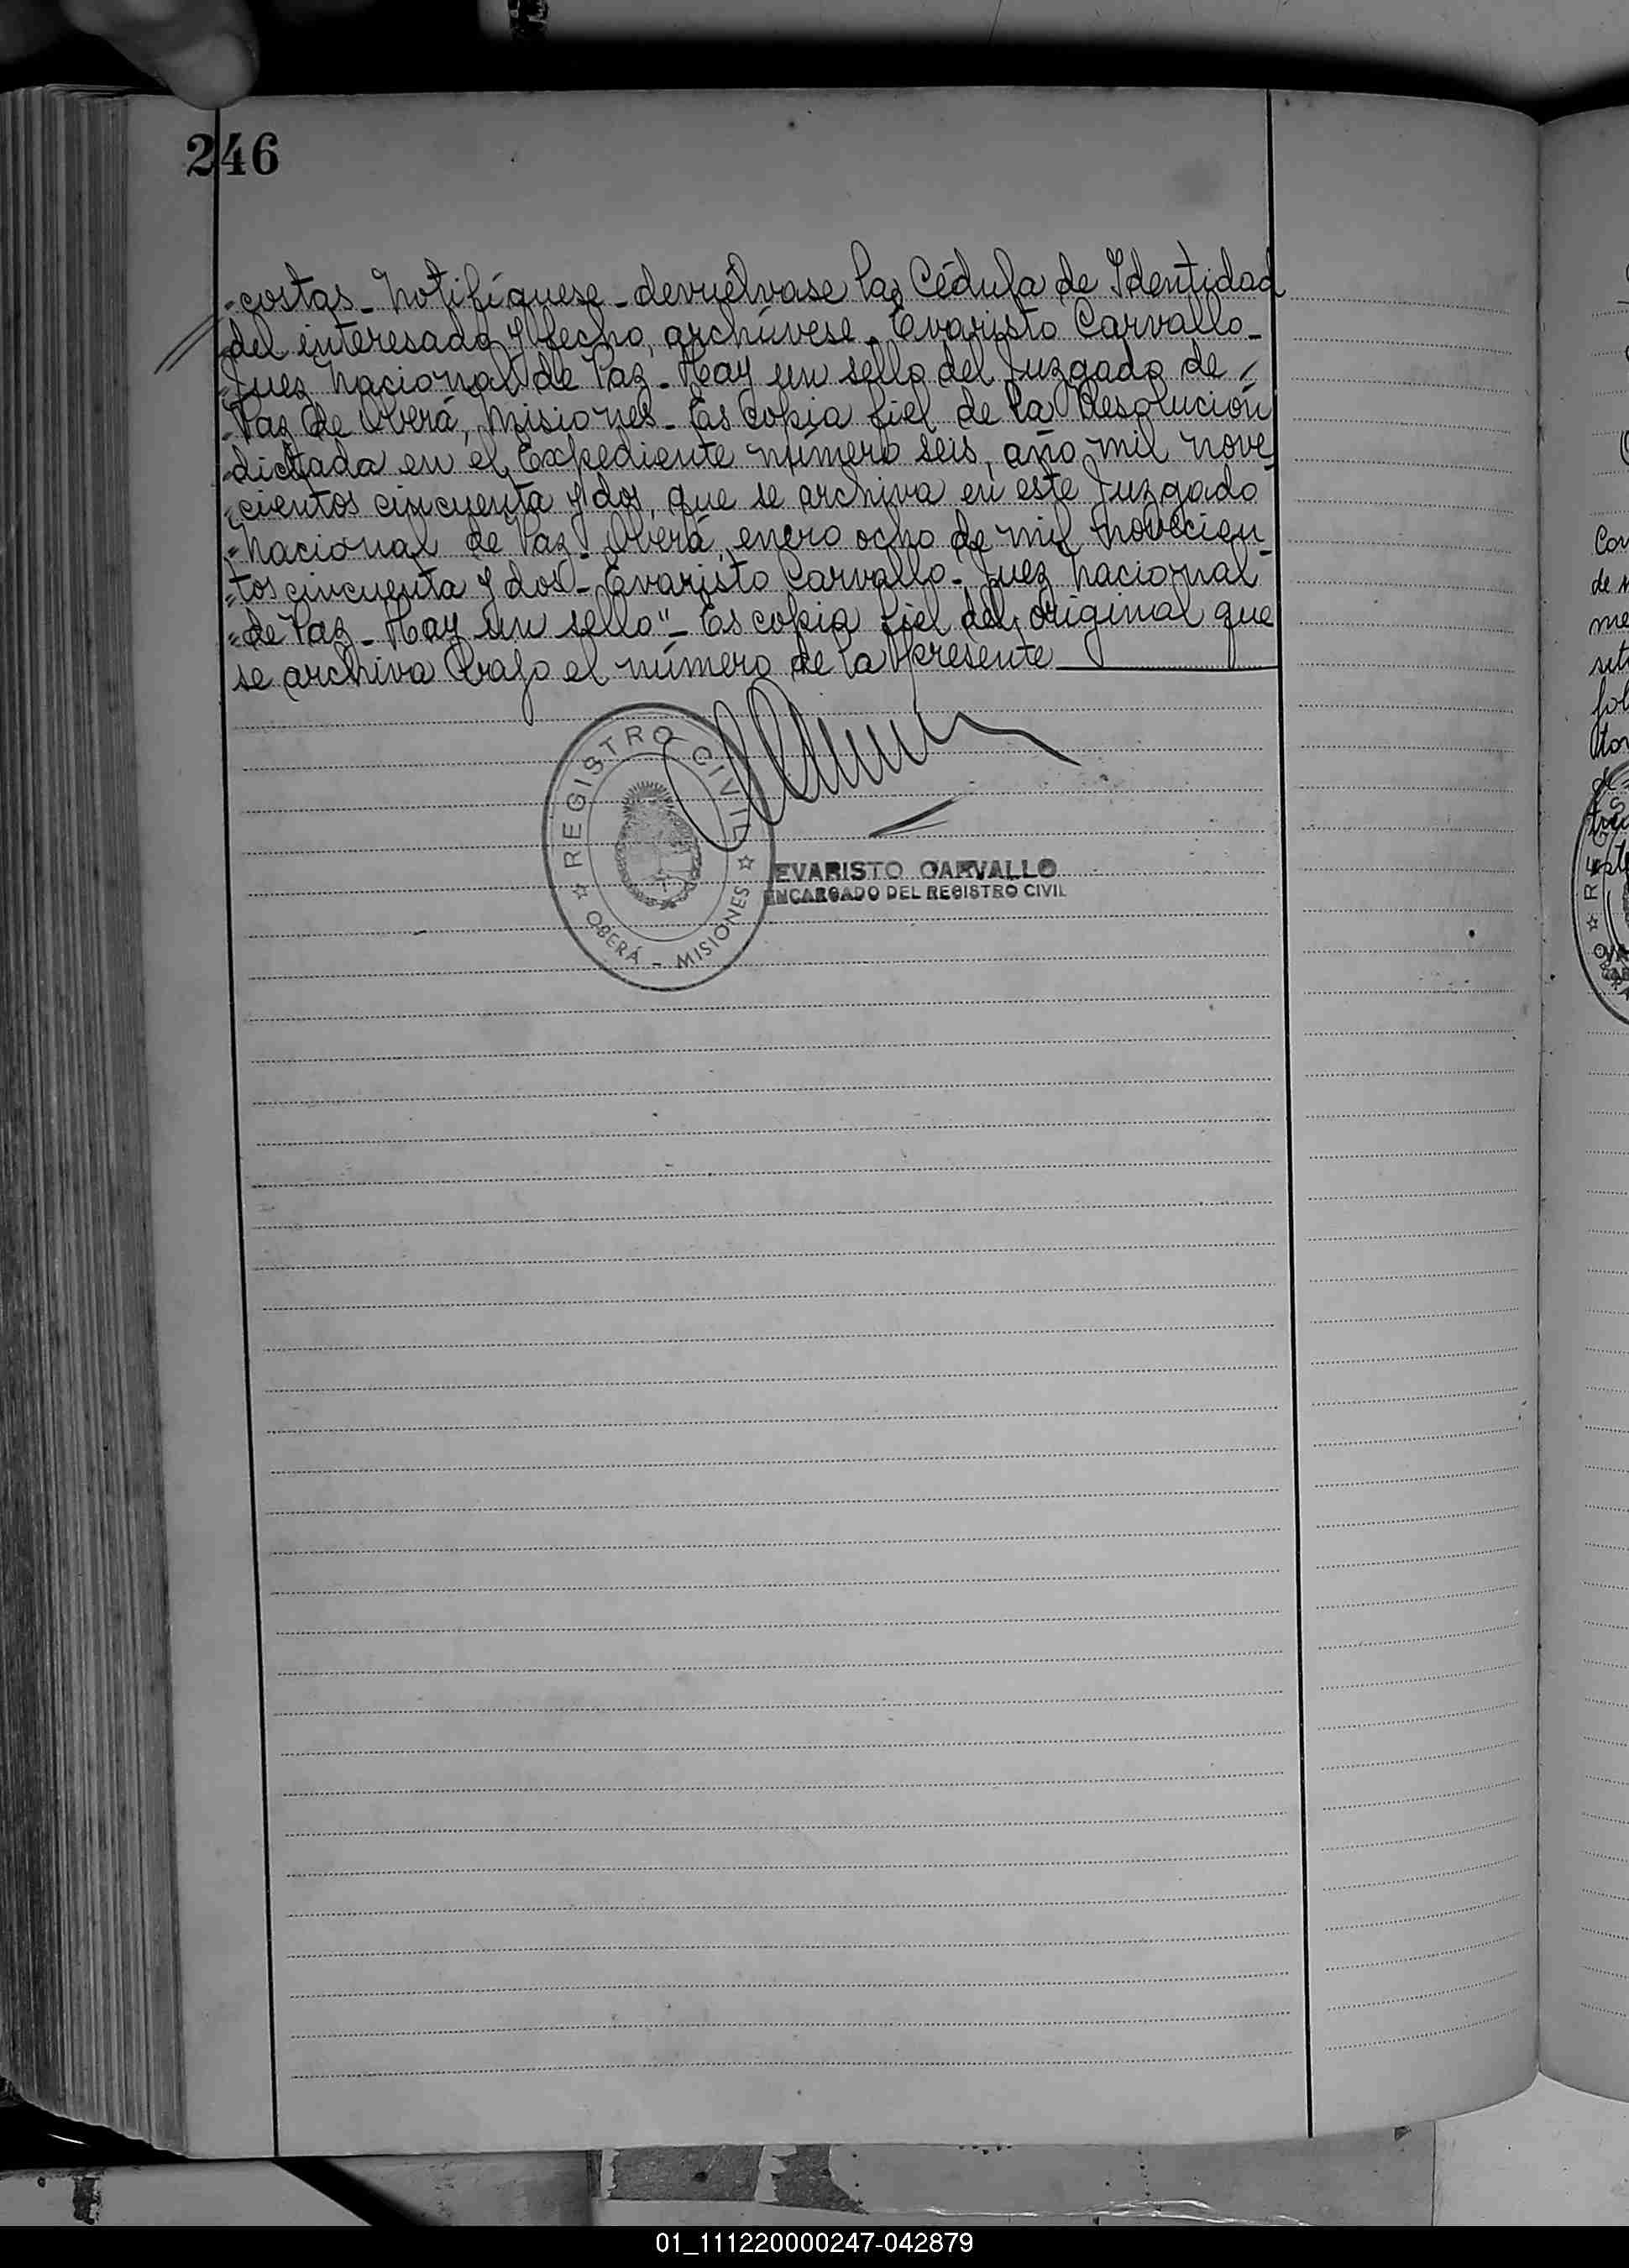 246
-costas_ Notifíquese_ devuélvase la Cédula de Identidad
del interesado y fecho, archívese_ Evaristo Carvallo_
Juez Nacional de Paz_ Hay un sello del Juzgado de
Paz de Oberá, Misiones_ Es copia fiel de la Resolución
dictada en el Expediente número seis, año mil nove
cientos cincuenta y dos, que se archiva en este Juzgado
Nacional de Paz_ Oberá, enero ocho de mil novecien_
tos cincuenta y dos_ Evaristo Carvallo_ Juez Nacional
de Paz_ Hay un sello"_ Es copia fiel del original que
se archiva bajo el número de la presente
REGISTRO CIVIL
OBERÁ - MISIONES
EVARISTO CARVALLO
ENCARGADO DEL REGISTRO CIVIL
01_111220000247-042879